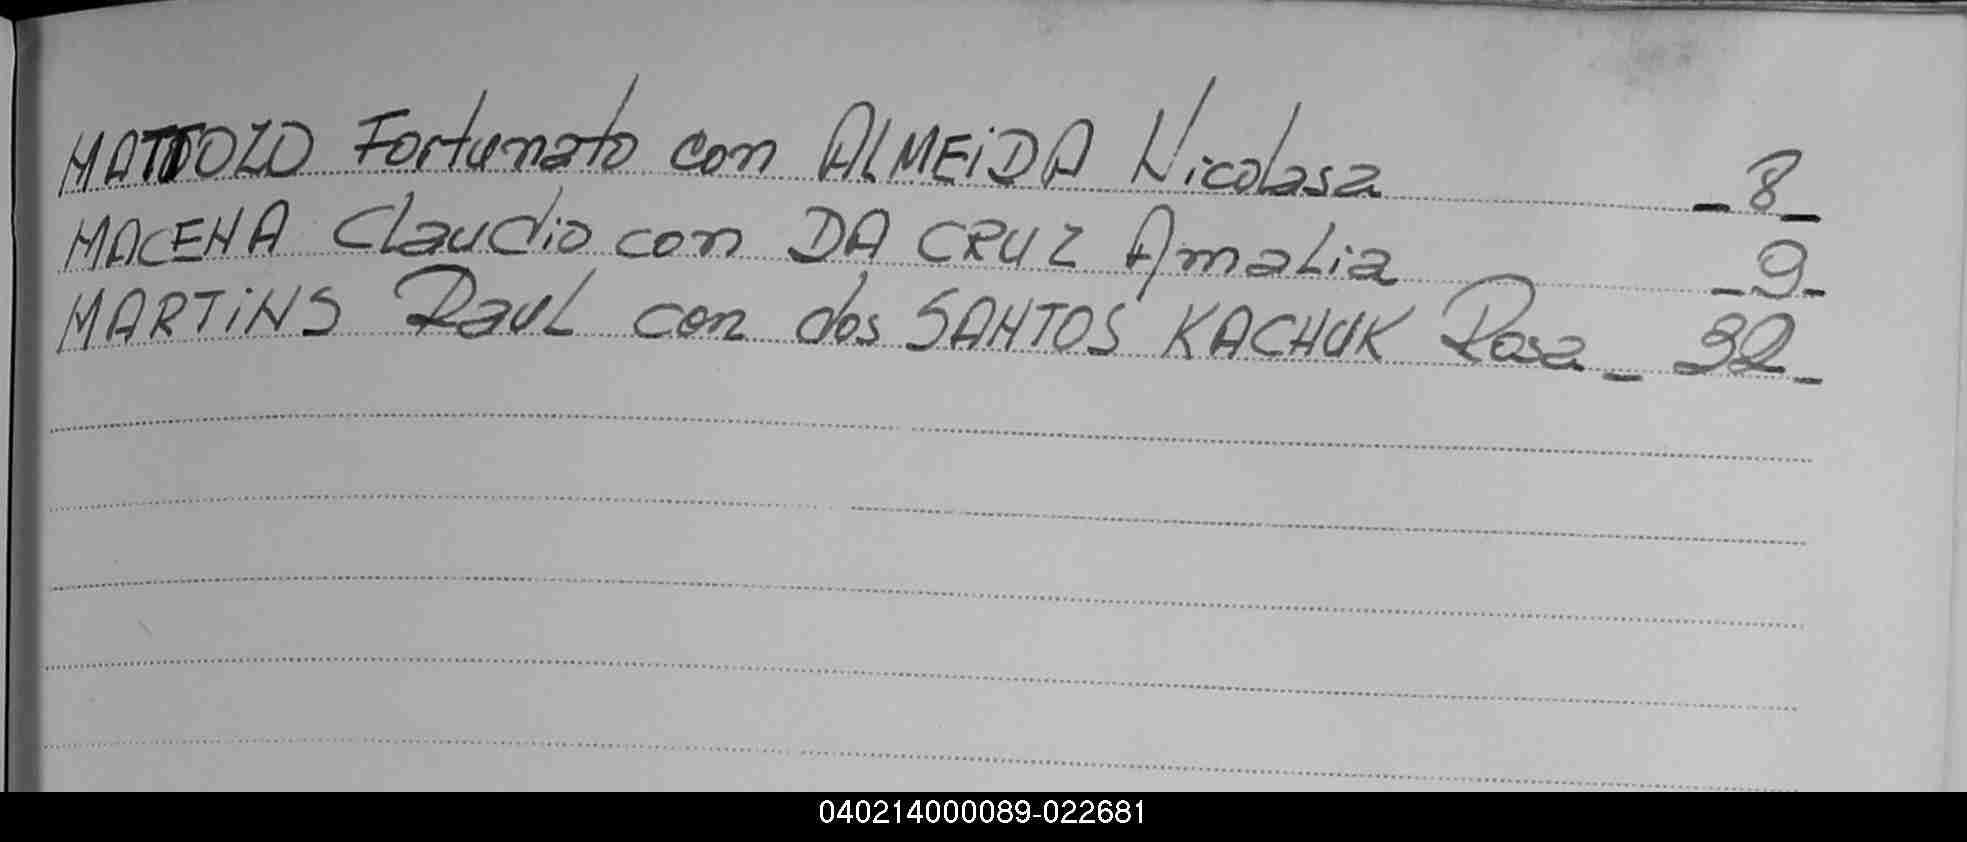 MATTOZO Fortunato con ALMEiDA Nicolasa _ 8 _
MACENA Claudio con DA CRUZ Amalia _ 9 _
MARTiNS Raul con dos SANTOS KACHUK Rosa _ 32 _
040214000089-022681